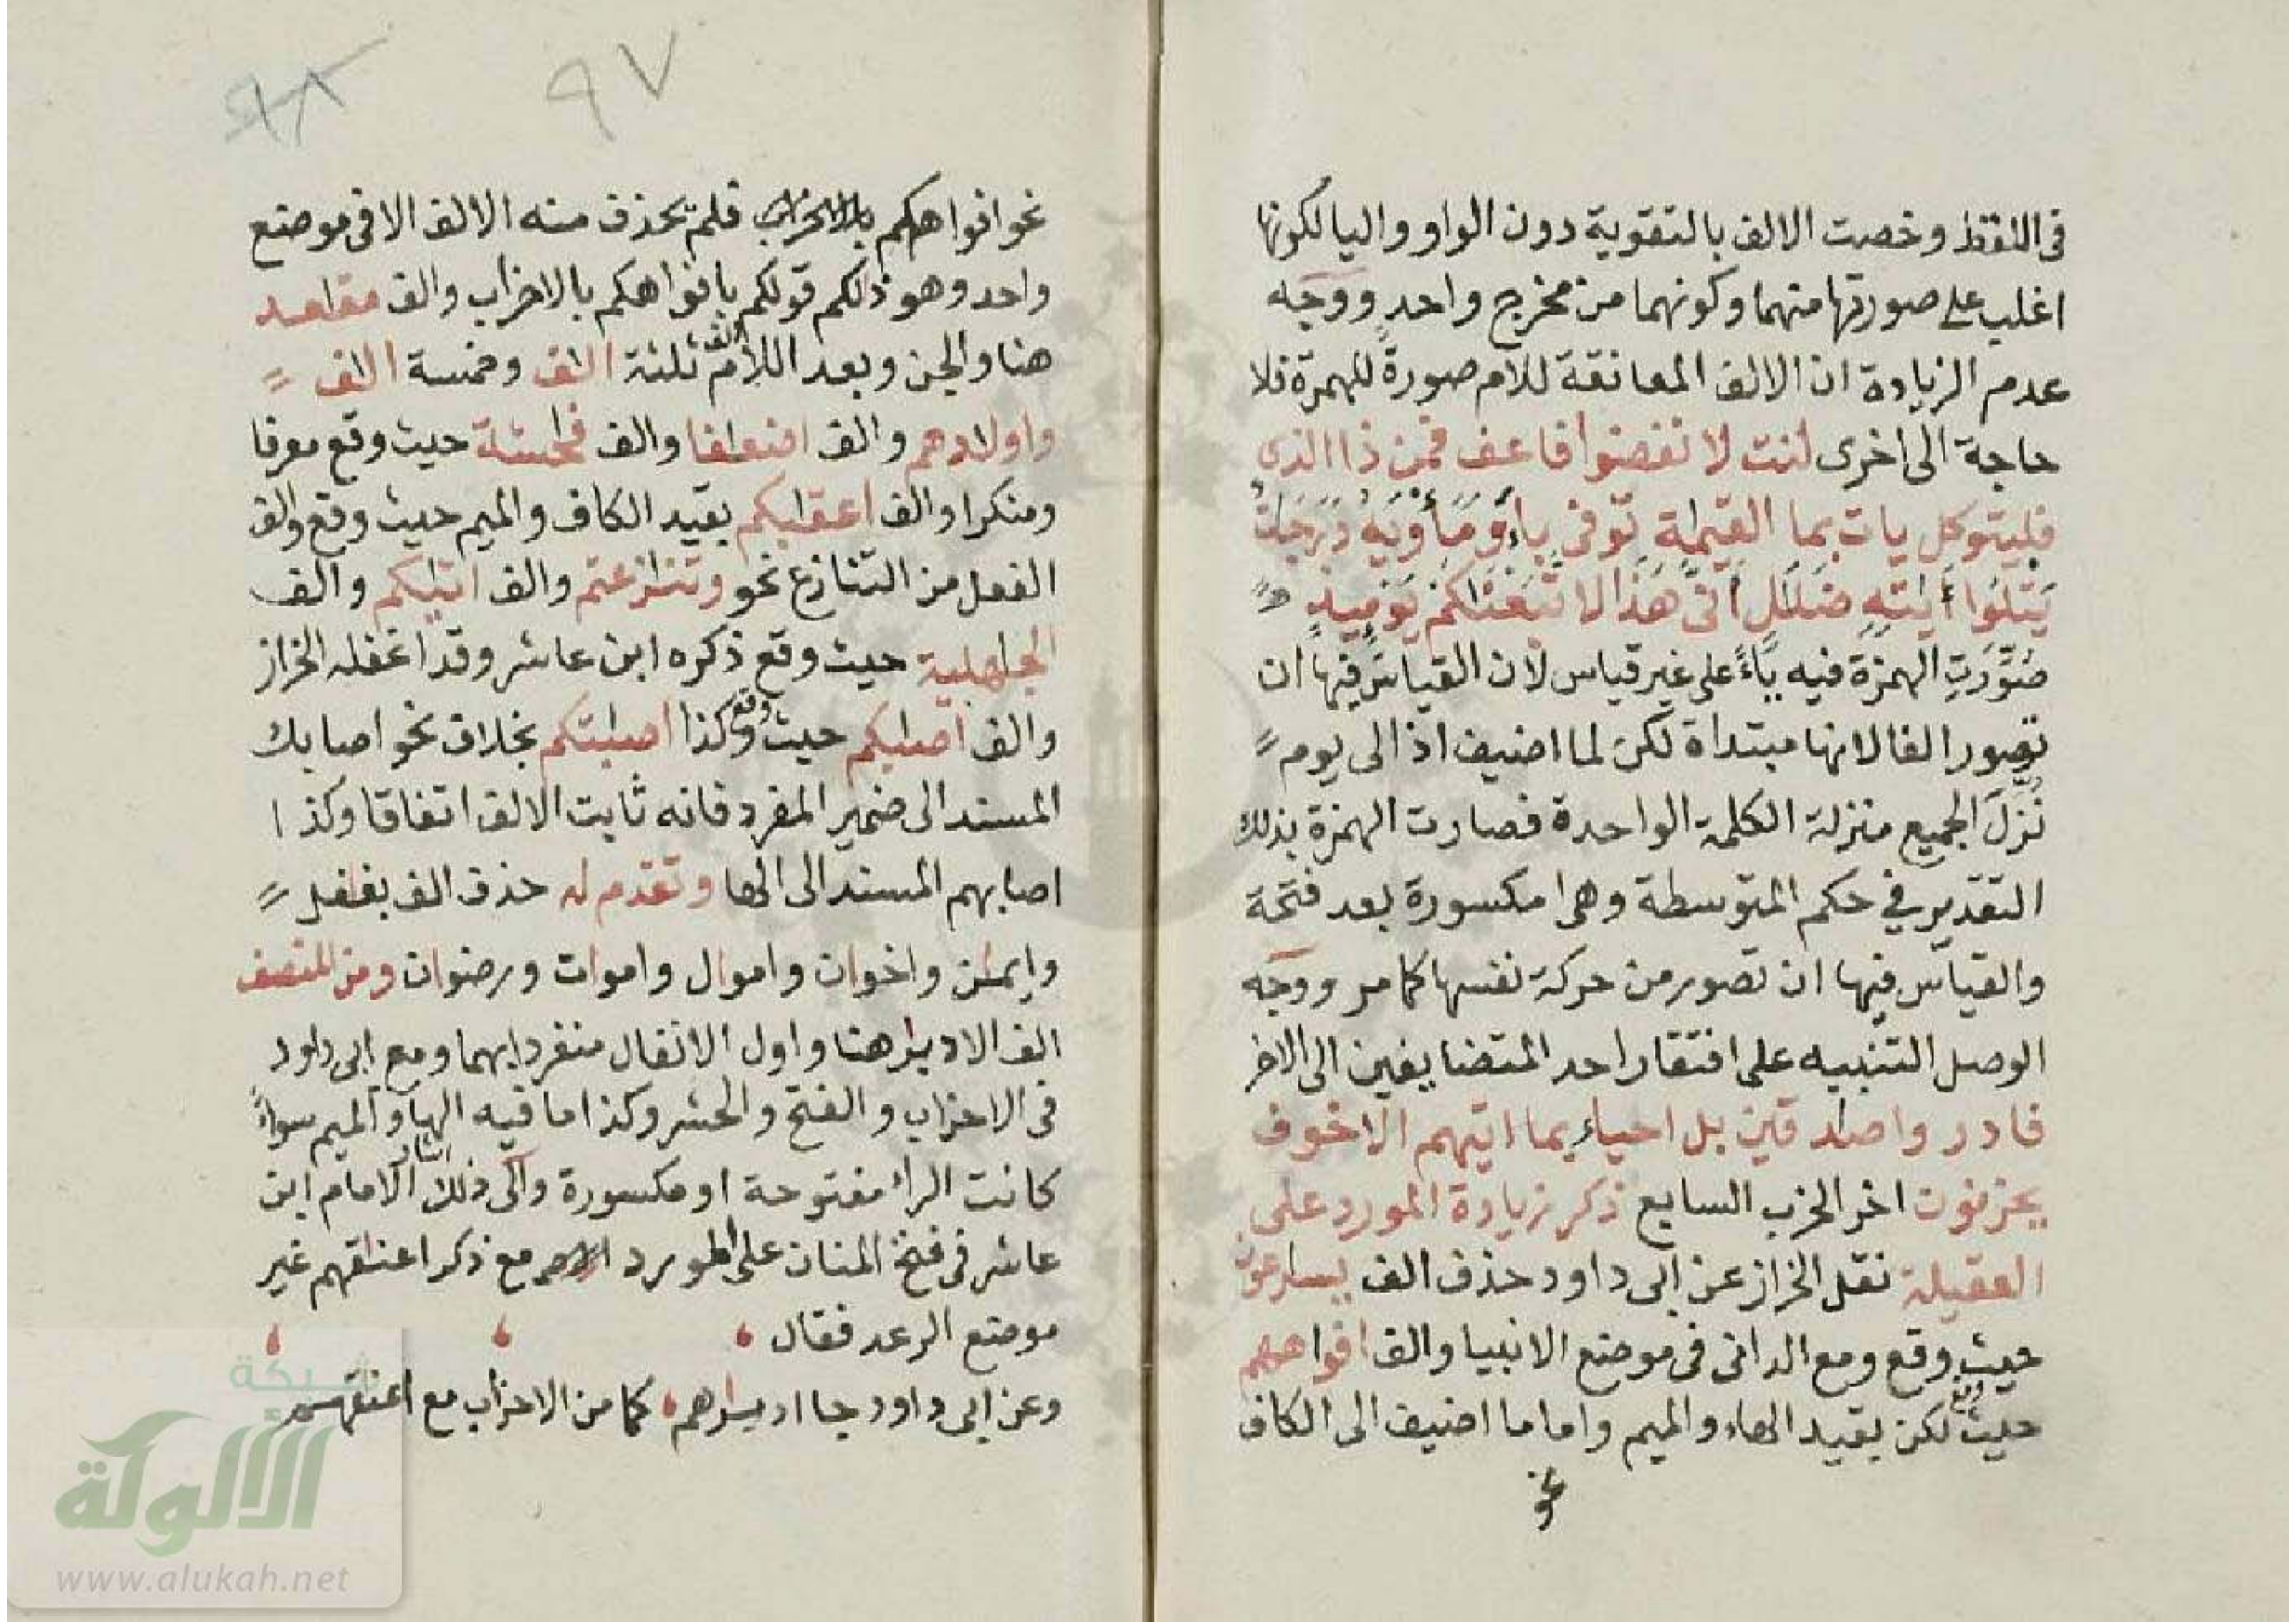 فى اللفظ وخصت الالف بالتقوية دون الواو واليا لكونها
اغلب على صورتها منهما وكونهما من مخرج واحدٍ ووجه
عدم الزيادة ان الالف المعانقة للام صورةً للهمزة فلا
حاجة الى اخرى لنت لا نفضوا فاعف فمن ذا الذى
فليتوكل يات بما القيٰمة توفى باءَ ومأويه درجٰت
يتلوا ءايٰته ضلٰل أنّى هذا لاتبعنٰكم يومئذ
صُوّرَتِ الهمزة فيه ياءً على غير قياس لان القياس فيها ان
تصور الفا لانها مبتداة لكن لما اضيف اذ الى يوم
نُزّلَ الجميع منزلة الكلمة الواحدة فصارت الهمزة بذلك
التقدير فى حكم المتوسطة وهى مكسورة بعد فتحة
والقياس فيها ان تصور من حركة نفسها كما مر ووجه
الوصل التنبيه على افتقار احد المتضايفين الى الاخر
فادر وا صٰدقين بل احياء بما اتيٰهم الا خوف
يحزنون اخر الحزب السابع ذكر زيادة المورد على
العقيلة نقل الخراز عن ابى داود حذف الف يسٰرعون
حيث وقع ومع الدانى فى موضع الانبيا والف افواههم
حيث وقع لكن بقيد الهاء والميم واما ما اضيف الى الكاف
نحو
٩٧
٩٨
نحو افواهكم فلم يحذف منه الالف الا فى موضع
واحد وهو ذلكم قولكم بافواهكم بالاحزاب والف مقٰعد
هنا والجن وبعد اللام الف ثلثة الٰف وخمسة الٰف
واولٰدهم والف انضعٰفا والف فٰحشة حيث وقع معرفا
ومنكرا والف اعقٰبكم بقيد الكاف والميم حيث وقع والف
الفعل من التنازع نحو وتنٰزعتم والف اثٰبكم والف
الجٰهلية حيث وقع ذكره ابن عاشر وقد اغفله الخراز
والف اصٰبكم حيث وقع وكذا اصٰبتكم بخلاف نحو اصابك
المسند الى ضمير المفرد فانه ثابت الالف اتفاقا وكذا
اصابهم المسند الى الها وتقدم له حذف الف بغٰفل
وايمٰن واخوان واموال واموات ورضوان ومن المنصف
الف الادبٰر هنا واول الانفال منفردا بهما ومع ابى داود
فى الاحزاب والفتح والحشر وكذا ما فيه الها والميم سواءً
كانت الرا مفتوحة او مكسورة والى ذلك اشار الامام ابن
عاشر فى فتح المنان على المورد مع ذكر اعنٰقهم غير
موضع الرعد فقال
وعن ابى داود جا ادبٰرهم كما من الاحزاب مع اعنٰقهم
شبكة
الألوكة
www.alukah.net